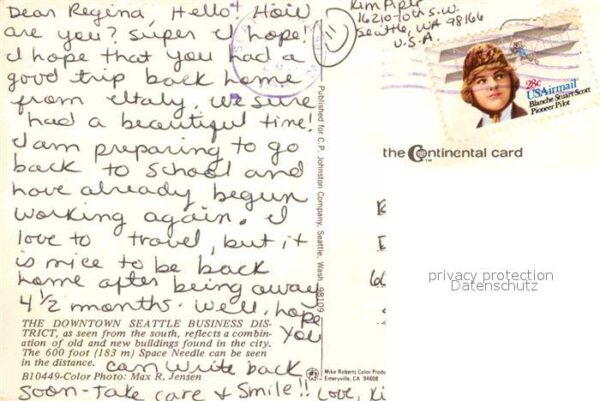 Dear Regina, Hello! How
are you? Super I hope!
I hope that you had a
good trip back home
from Italy, we sure
had a beautiful time!
I am preparing to go
back to school and
have already begun
working again. I
love to travel, but it
is nice to be back
home after being away
4 1/2 months. Well, hope
you
can write back
soon-Take care & Smile!! Love, Ki
THE DOWNTOWN SEATTLE BUSINESS DIS-
TRICT, as seen from the south, reflects a combin-
ation of old and new buildings found in the city.
The 600 foot (183 m) Space Needle can be seen
in the distance.
B10449-Color Photo: Max R. Jensen
Published for C.P. Johnston Company, Seattle, Wash. 98109
Mike Roberts Color Produ
Emeryville, CA 94608
Kim Piper
Seattle, WA 98166
U.S.A.
28c
USAirmail
Blanche Stuart Scott
Pioneer Pilot
the Continental card
TM
privacy protection
Datenschutz